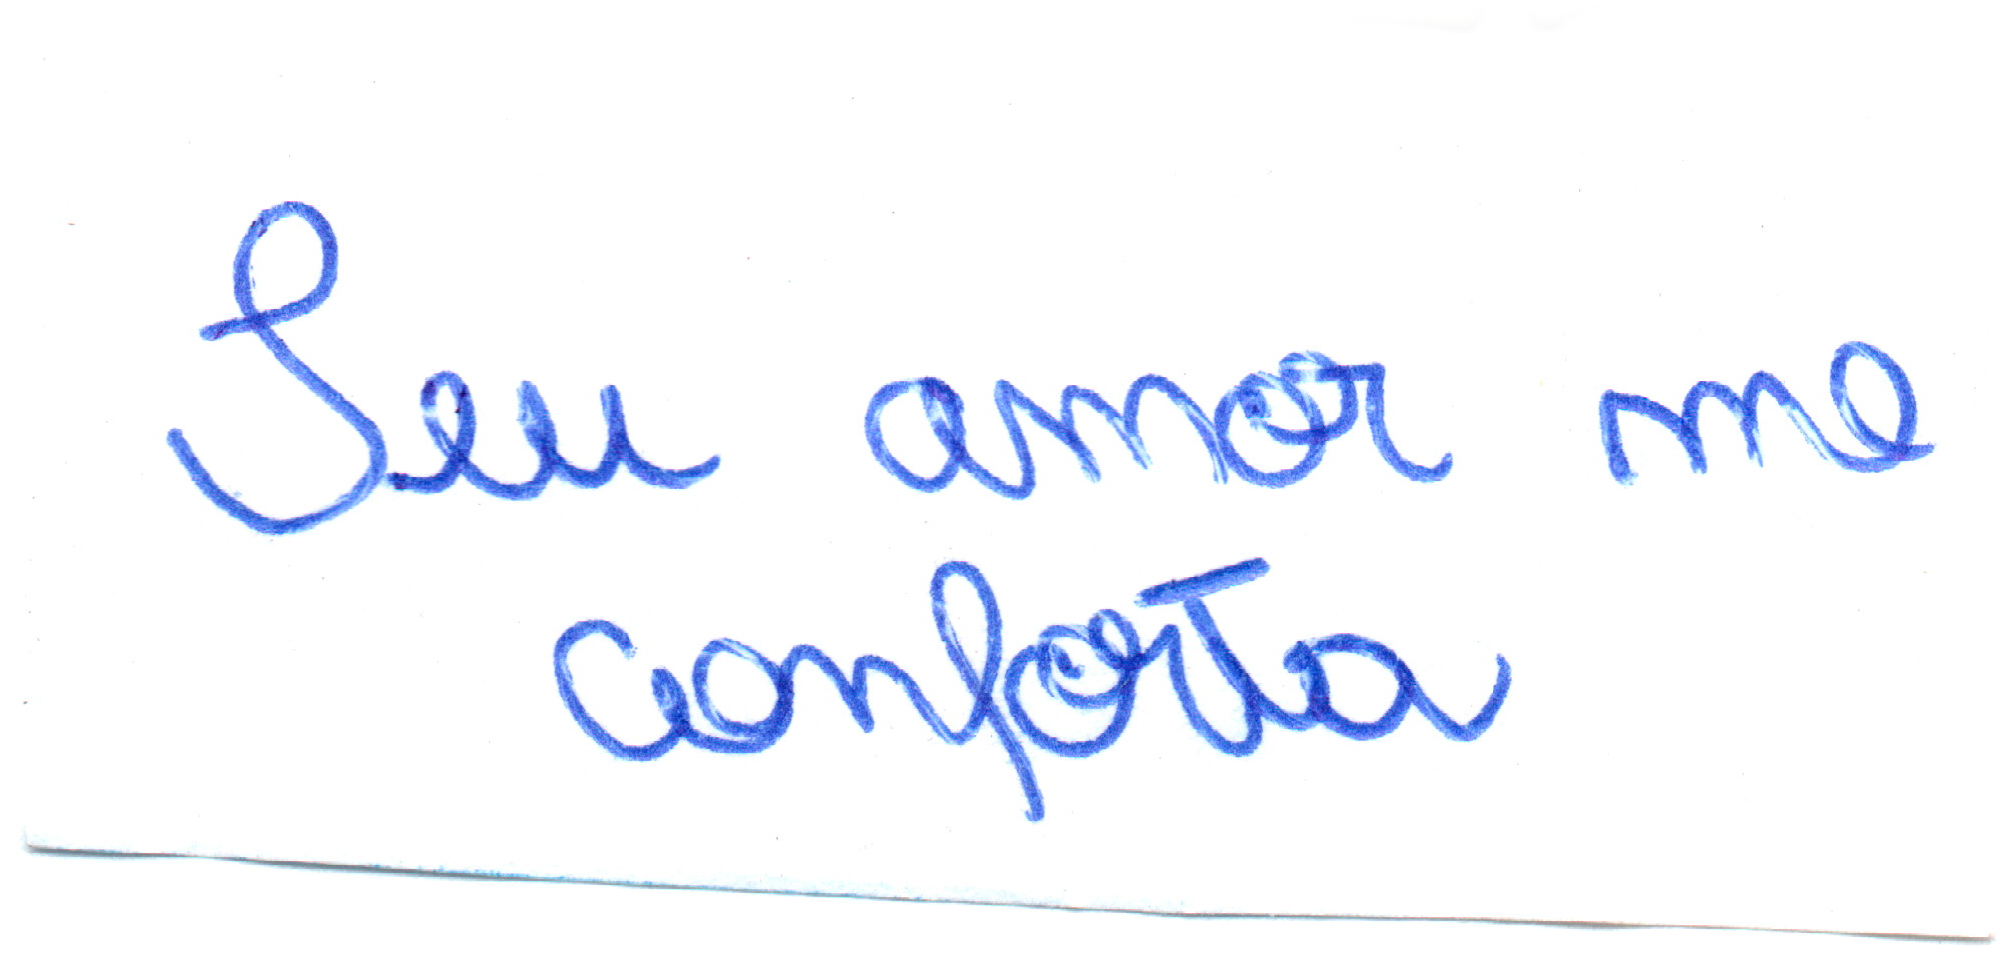 Seu amor me
conforta